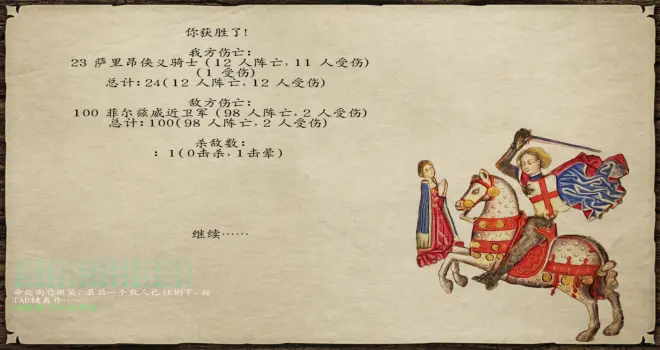 你获胜了!
我方伤亡:
23 萨里昂侠义骑士 (12 人阵亡, 11 人受伤)
(1 受伤)
总计: 24(12 人阵亡, 12 人受伤)
敌方伤亡:
100 菲尔兹威近卫军 (98 人阵亡, 2 人受伤)
总计: 100(98 人阵亡, 2 人受伤)
杀敌数:
: 1(0击杀, 1击晕)
继续……
命运向你微笑, 最后一个敌人已经倒下, 按
TAB键离开……